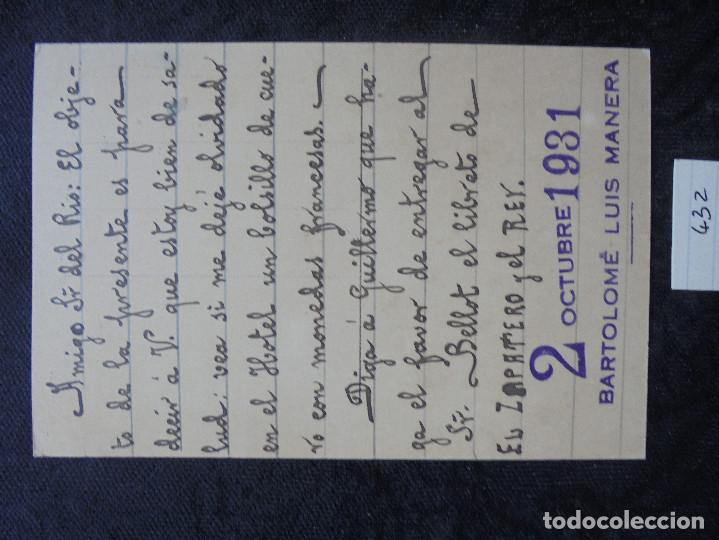 Amigo Sr̃ del Rio: El obje-
to de la presente es para
decir á V. que estoy bien de sa-
lud: vea si me dejé olvidado
en el Hotel un bolsillo de cue-
ro con monedas francesas. —
Diga á Guillermo que ha-
ga el favor de entregar al
Sr̃. Bellot el libreto de
EL ZAPATERO y el REY.
2 OCTUBRE 1931
BARTOLOMÉ LUIS MANERA
432
todocoleccion
todocoleccion.net